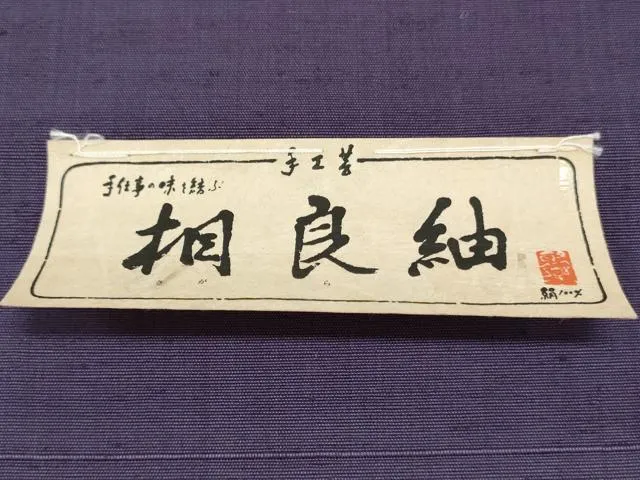 手工芸
手仕事の味を結ぶ
相良紬
さがら
絹100%